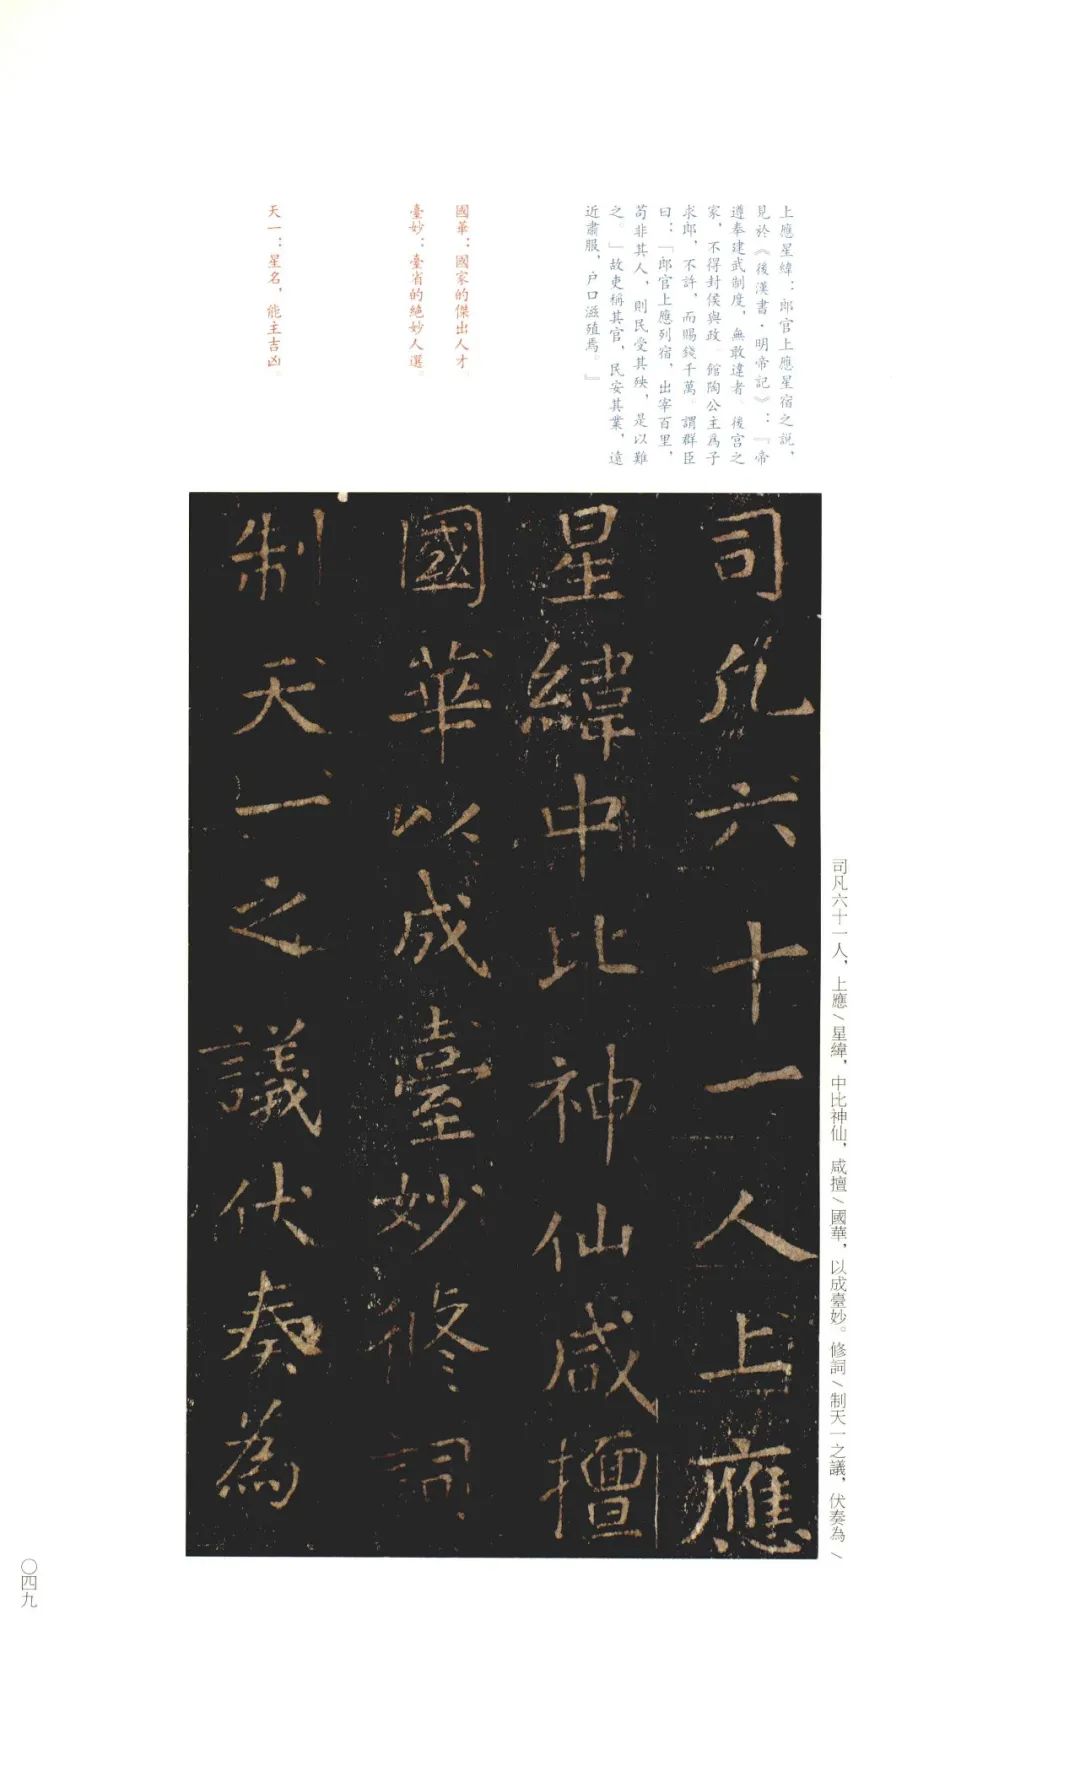 上應星緯：郎官上應星宿之説，
見於《後漢書·明帝記》：『帝
遵奉建武制度，無敢違者。後宫之
家，不得封侯與政。館陶公主爲子
求郎，不許，而賜錢千萬。謂群臣
曰：「郎官上應列宿，出宰百里，
苟非其人，則民受其殃，是以難
之。」故吏稱其官，民安其業，遠
近肅服，户口滋殖焉。』
國華：國家的傑出人才。
臺妙：臺省的絶妙人選。
天一：星名，能主吉凶。
司凡六十一人上應
星緯中比神仙咸擅
國華以成臺妙修詞
制天一之議伏奏為
司凡六十一人，上應／星緯，中比神仙，咸擅／國華，以成臺妙。修詞／制天一之議，伏奏為／
〇四九